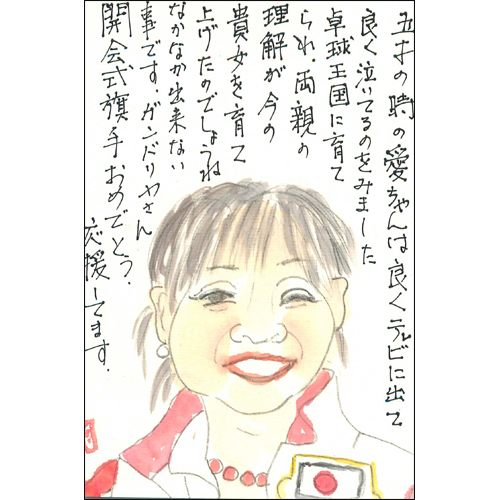 五才の時の愛ちゃんは良くテレビに出て
良く泣いてるのをみました
卓球王国に育て
られ、両親の
理解が今の
貴女を育て
上げたのでしょうね
なかなか出来ない
事です。ガンドリヤさん
開会式旗手おめでとう。
応援してます。